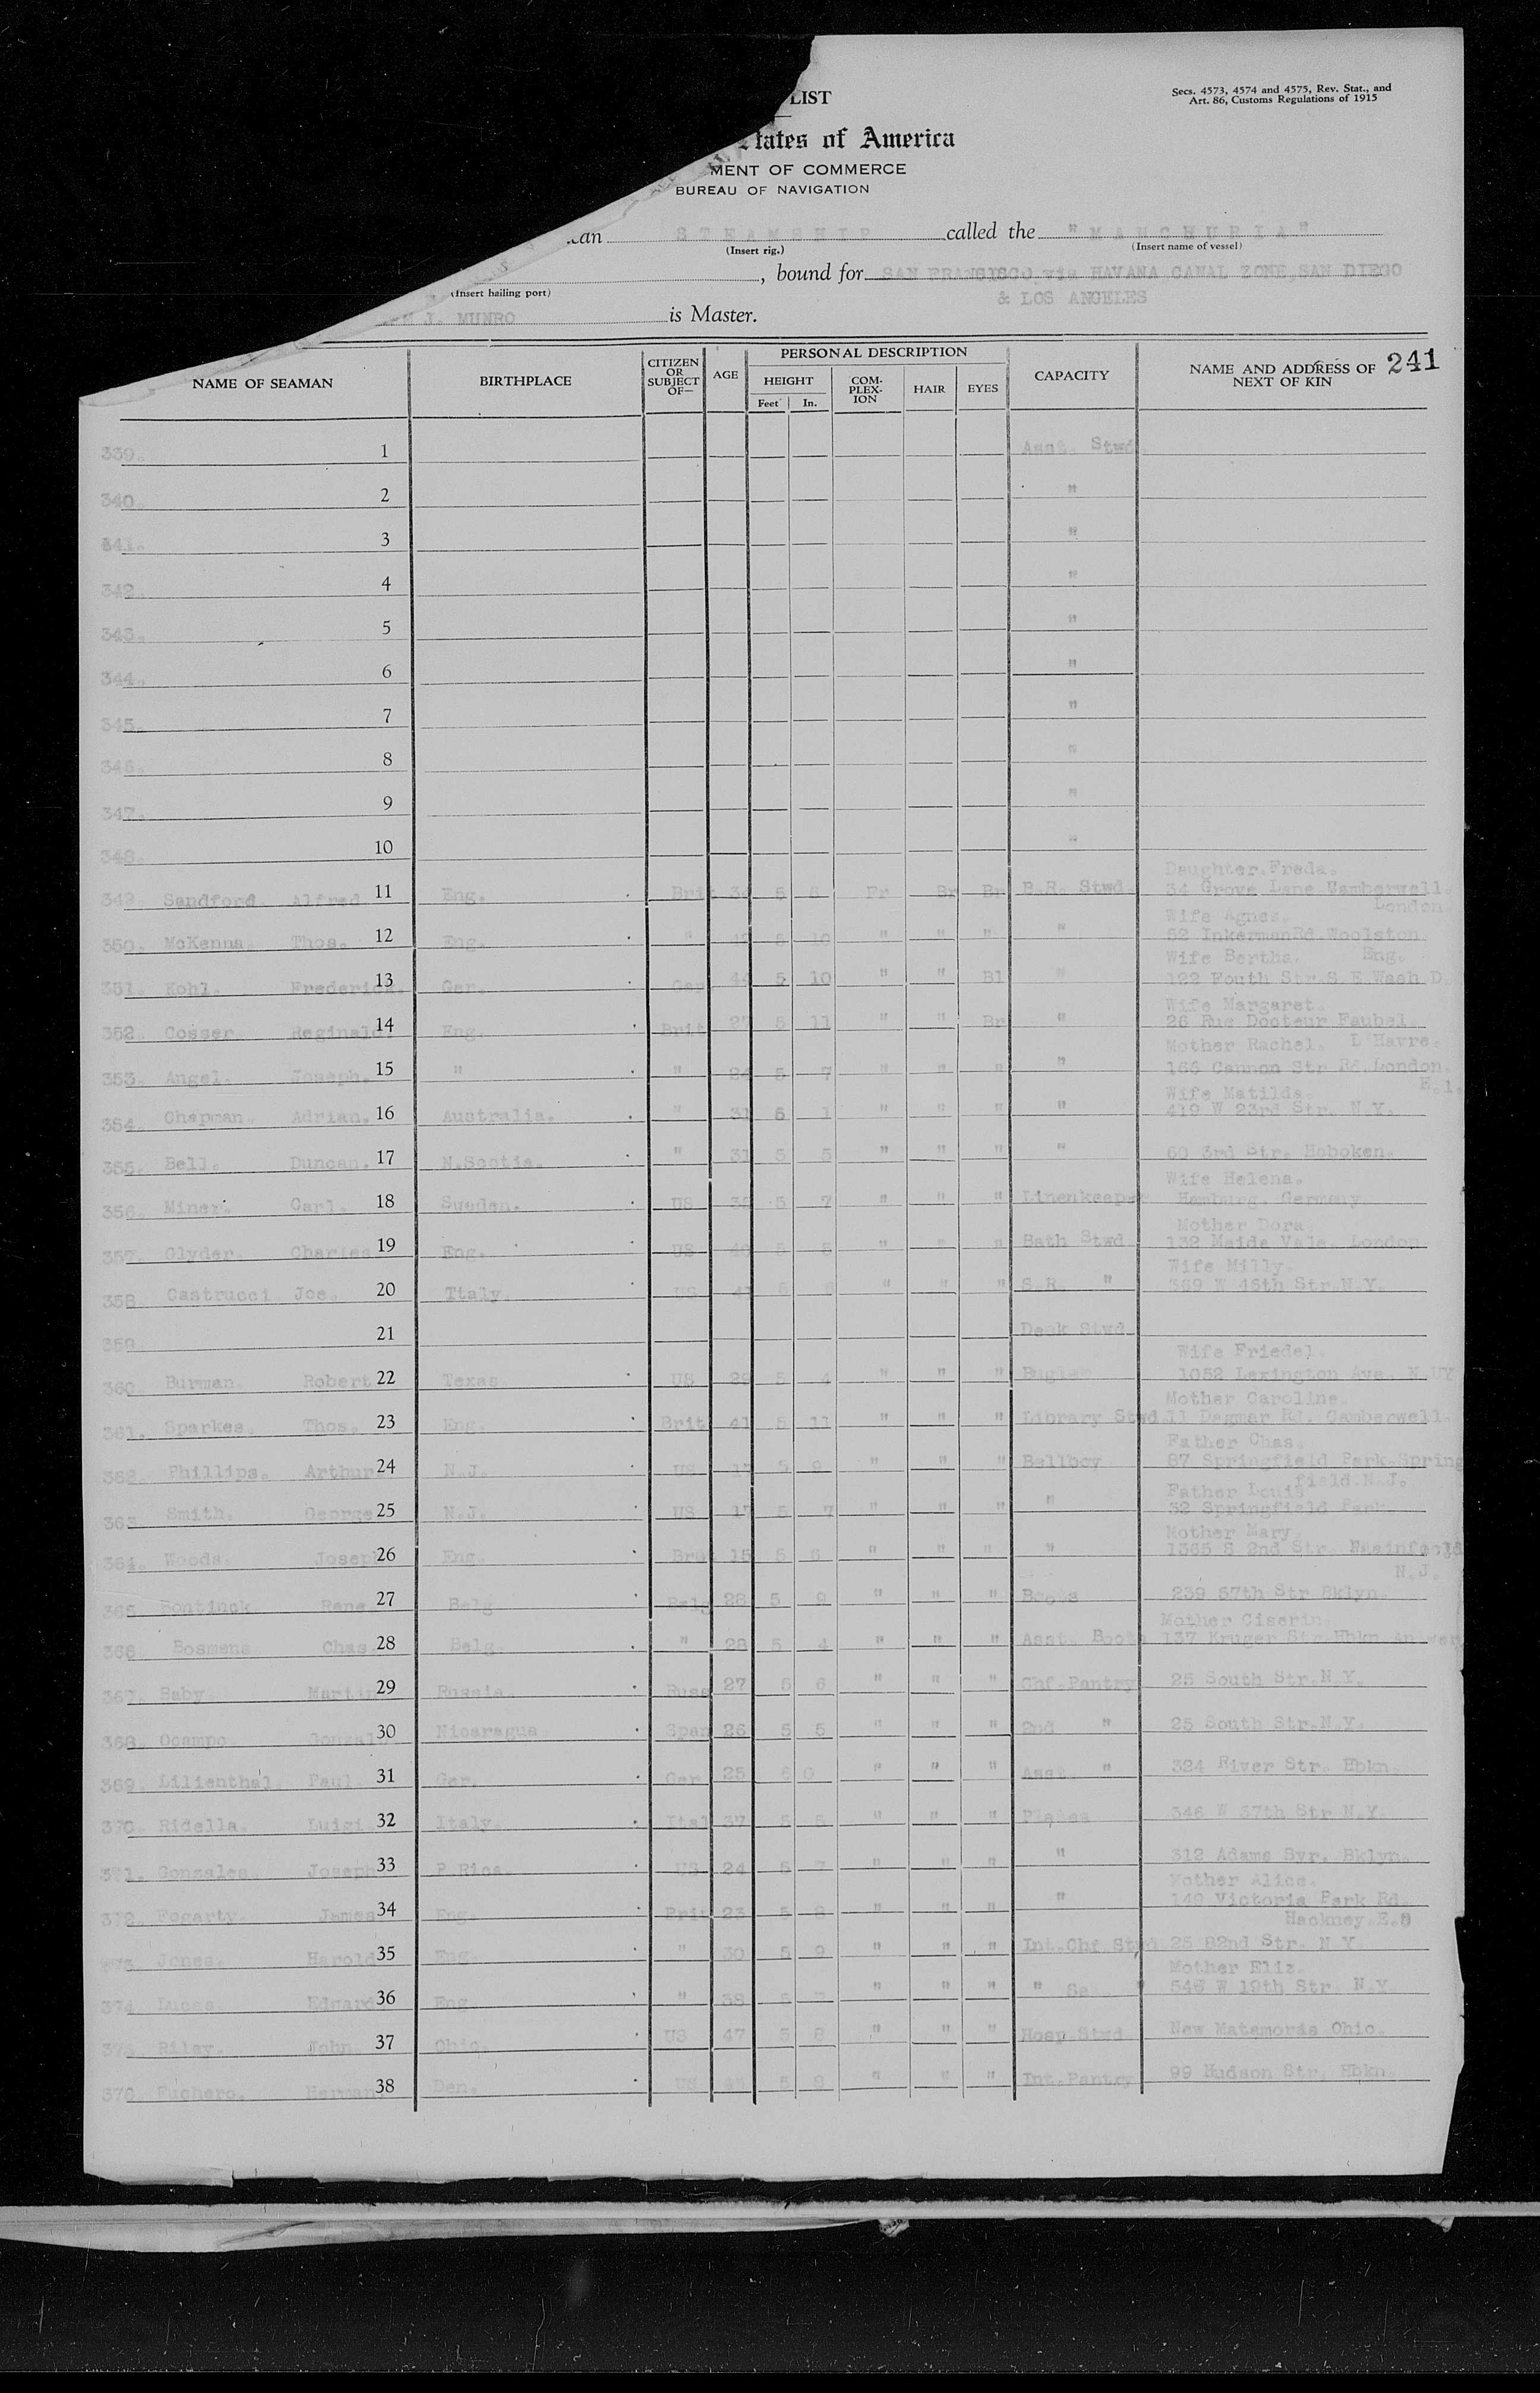 LIST
Secs. 4573, 4574 and 4575, Rev. Stat., and
Art. 86, Customs Regulations of 1915
tates of America
MENT OF COMMERCE
BUREAU OF NAVIGATION
can STEAMSHIP called the "MANCHURIA"
(Insert rig.) (Insert name of vessel)
, bound for SAN FRANSISCO, via HAVANA, CANAL ZONE, SAN DIEGO
(Insert hailing port) & LOS ANGELES
J. MUNRO is Master.
241
NAME OF SEAMAN BIRTHPLACE CITIZEN OR SUBJECT OF— AGE PERSONAL DESCRIPTION HEIGHT Feet In. COM-PLEX-ION HAIR EYES CAPACITY NAME AND ADDRESS OF NEXT OF KIN
339. 1 Asst. Stwd
340. 2 "
341. 3 "
342. 4 "
343. 5 "
344. 6 "
345. 7 "
346. 8 "
347. 9 "
348. 10 "
Daughter Freda.
349. Sandford. Alfred 11 Eng. Brit 34 5 6 Fr Br Br B.R. Stwd. 34 Grove Lane Camberwell.
London.
Wife Agnes.
350. McKenna. Thos. 12 Eng. " 5 10 " " " " 52 Inkerman Rd. Woolston
Wife Bertha. Eng.
351. Kohl. Frederick. 13 Ger. Ger 44 5 10 " " Bl " 122 Fouth Str. S.E. Wash D.
Wife Margaret.
352. Cosser. Reginald. 14 Eng. Brit 27 5 11 " " Br " 26 Rue Docteur Faubel.
Mother Rachel. L'Havre.
353. Angel. Joseph. 15 " " 24 5 7 " " " " 166 Cannon Str Rd. London.
Wife Matilda. E.1.
354. Chapman. Adrian. 16 Australia. " 31 1 " " " " 419 W 23rd Str. N.Y.
355. Bell. Duncan. 17 N.Scotia. " 31 5 5 " " " " 60 3rd Str. Hoboken.
Wife Helena.
356. Miner. Carl. 18 Sweden. US 5 7 " " " Linenkeeper Hamburg. Germany.
Mother Dora.
357. Glyder. Charles 19 Eng. US 5 " " " Bath Stwd 132 Maida Vale. London.
Wife Milly.
358. Castrucci Jos. 20 Ttaly. US 41 5 " " " S.R. " 369 W 46th Str. N.Y.
359. 21 Deck Stwd
Wife Friedel.
360. Burman. Robert 22 Texas US 5 4 " " " Bugler 1052 Lexington Ave. N.
Mother Caroline.
361. Sparkes. Thos. 23 Eng. Brit 41 5 11 " " " Library Stwd. 11 Dagmar Rd. Camberwell.
Father Chas.
362. Phillips. Arthur 24 N.J. US 17 5 9 " " " Bellboy 87 Springfield Park. Spring
field. N.J.
Father Louis
363. Smith. George 25 N.J. US 17 5 7 " " " " 52 Springfield Park.
Mother Mary.
364. Woods. Joseph 26 Eng. 15 5 6 " " " " 1365 S 2nd Str.
N.J.
365. Bontinck. Rene. 27 Belg Belg 28 5 9 " " " Boots 239 57th Str Bklyn.
Mother
366. Bosmans. Chas 28 Belg. " 28 5 4 " " " Asst. Boots 137 Kruger Str
367. Baby Martin 29 Russia. Russ 27 5 6 " " " Chf.Pantry 25 South Str. N.Y.
368. Ocampo 30 Nicaragua Span 26 5 5 " " " 2nd " 25 South Str. N.Y.
369. Lilienthal. Paul 31 Ger. Ger 25 6 0 " " " Asst. " 324 River Str. Hbkn.
370. Ridella. Luigi 32 Italy. Ital 37 5 5 " " " 346 W 37th Str N.Y.
371. Gonzales. Joseph 33 P.Rico. US 24 5 7 " " " " 312 Adams Syr. Bklyn.
Mother Alice.
372. Fogarty. James 34 Eng. 23 5 8 " " " " 149 Victoria Park Rd.
Hackney. E.
373. Jones. Harold 35 Eng. " 30 5 9 " " " Int.Chf Stwd 25 82nd Str. N.Y.
Mother Eliz.
374. Lucas Edward 36 Eng. " 38 5 " " " " " W 19th Str. N.Y
375. Riley. John. 37 Ohio. US 47 5 8 " " " Hosp.Stwd New Matamoras Ohio.
376. Fuchero. Herman 38 Den. US 5 9 " " " Int.Pantry 99 Hudson Str. Hbkn.